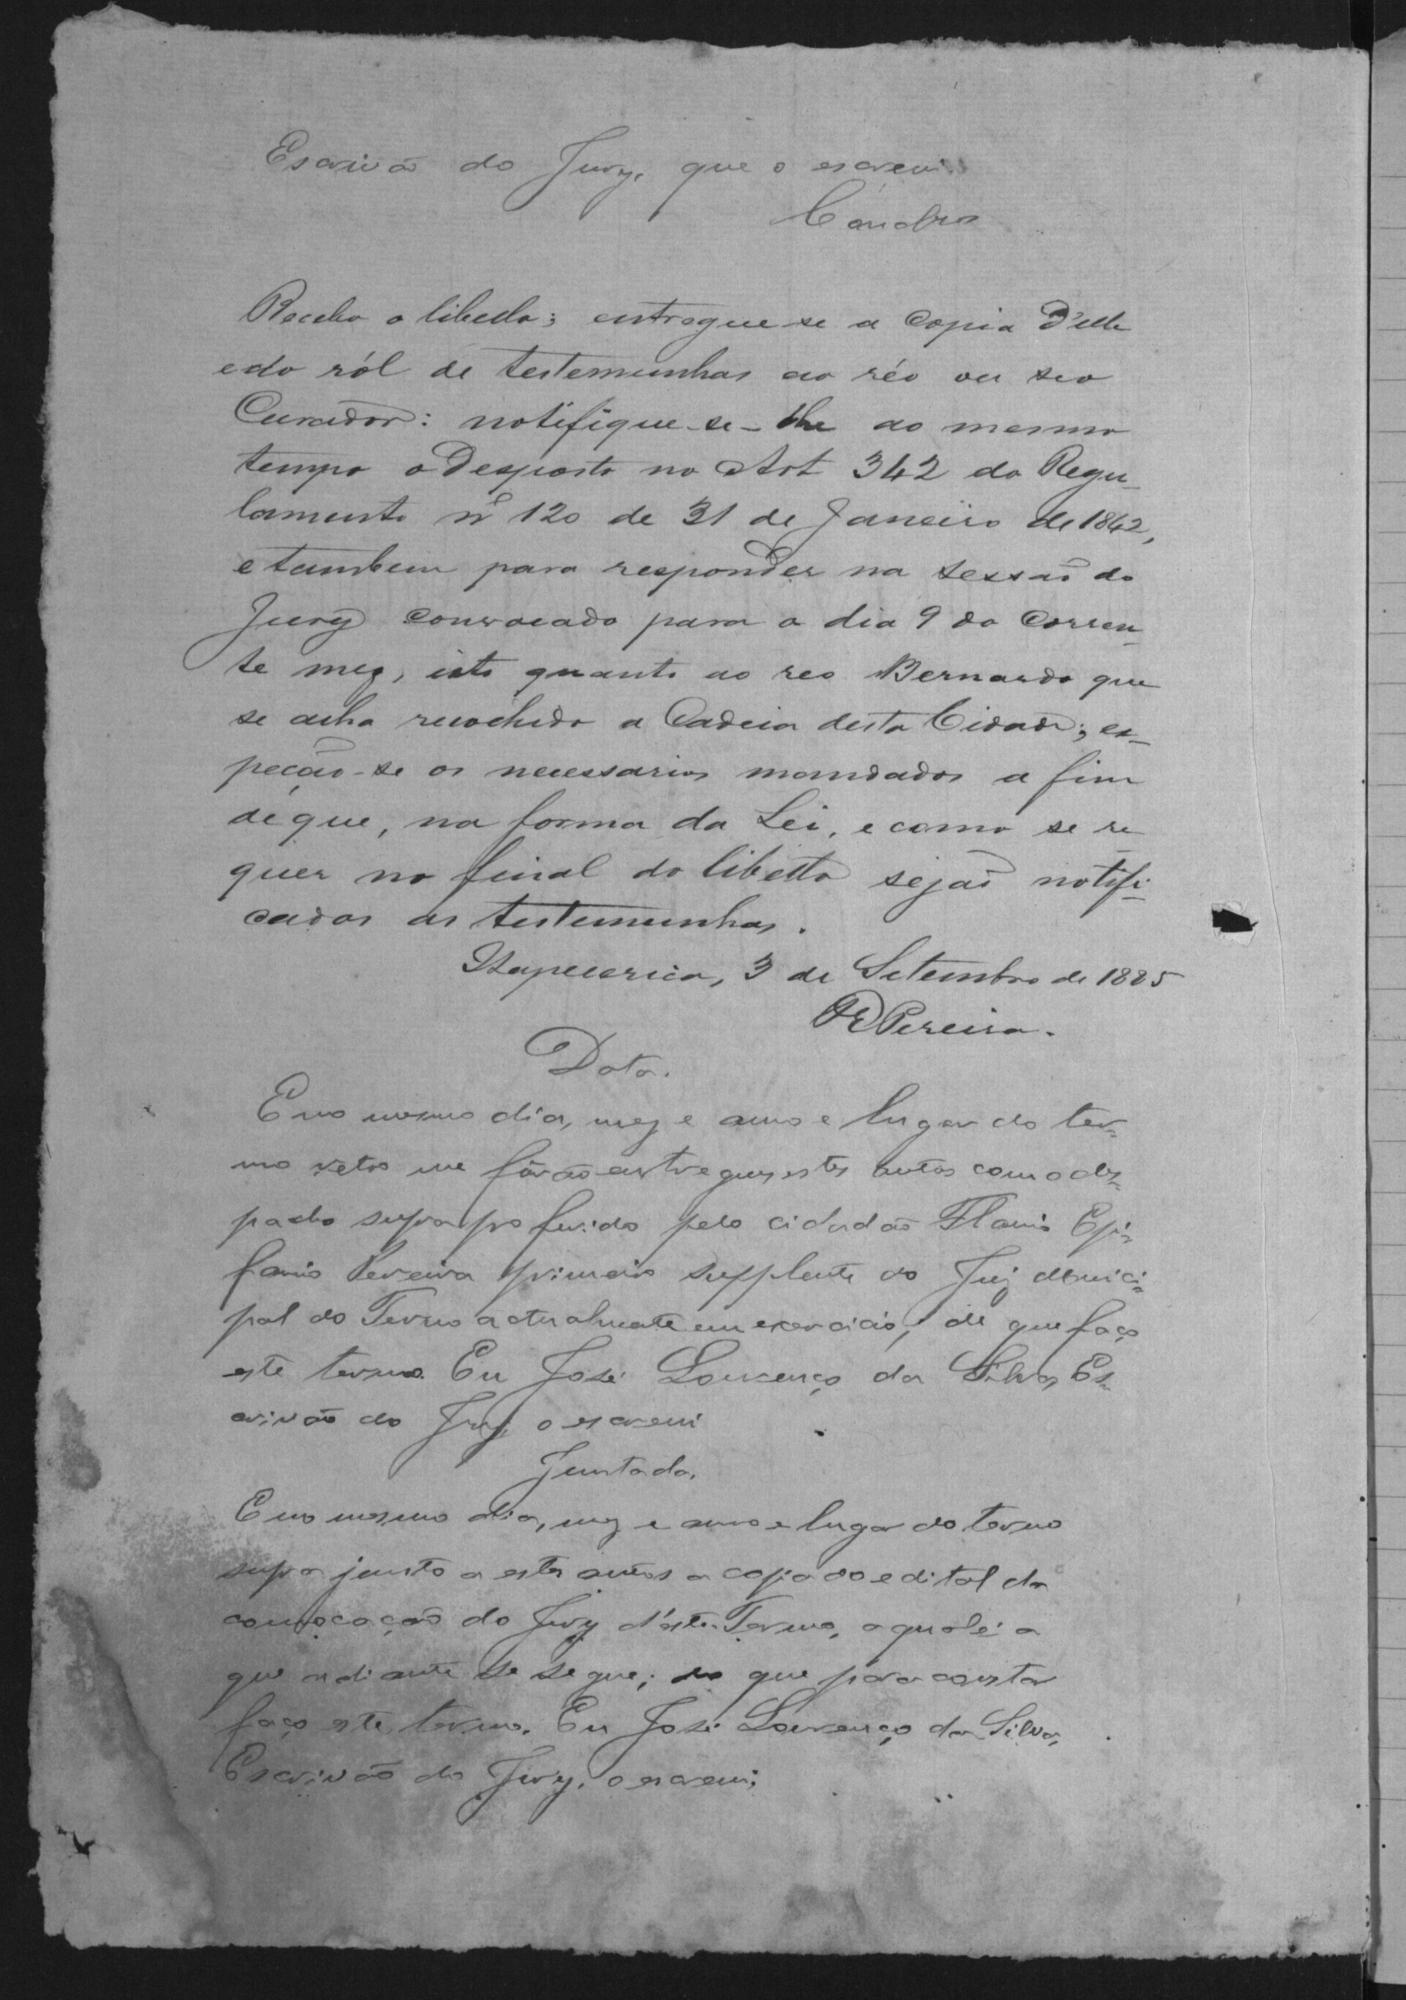 Escrivão do Jury, que o escrevi
Recebo o libello; entregue-se a copia d'elle
e do ról de testemunhas ao réo ou seo
Curador: notifique-se-lhe ao mesmo
tempo o desposto no Art 342 do Regu-
lamento nº 120 de 31 de Janeiro de 1842,
e tambem para responder na sessaõ do
Jury convocado para o dia 9 do corren-
te mez, isto quanto ao reo Bernardo que
se acha recolhido a Cadeia desta Cidade; ex-
peção-se os necessarios mandados a fim
de que, na forma da Lei, e como se re
quer no final do libello sejaõ notifi-
cados as testemunhas.
Itapecerica, 3 de Setembro de 1885
FEPereira.
Data.
E no mesmo dia, mez e anno e lugar do ter-
mo retro me fôrão entregues estes autos com o des-
pacho supra proferido pelo cidadão Flavio Epi-
fanio Pereira primeiro supplente do Juiz Munici-
pal do Termo actualmente em exercicio, de que faço
este termo. Eu José Lourenço da Silva, Es-
crivão do Jury, o escrevi
Juntada.
E no mesmo dia, mez e anno e lugar do termo
supra junto a estes autos a copia do edital da
convocação do Jury d'este Termo, a qual é a
que adiante se segue; do que para constar
faço este termo. Eu José Lourenço da Silva,
Escrivão do Jury, o escrevi;